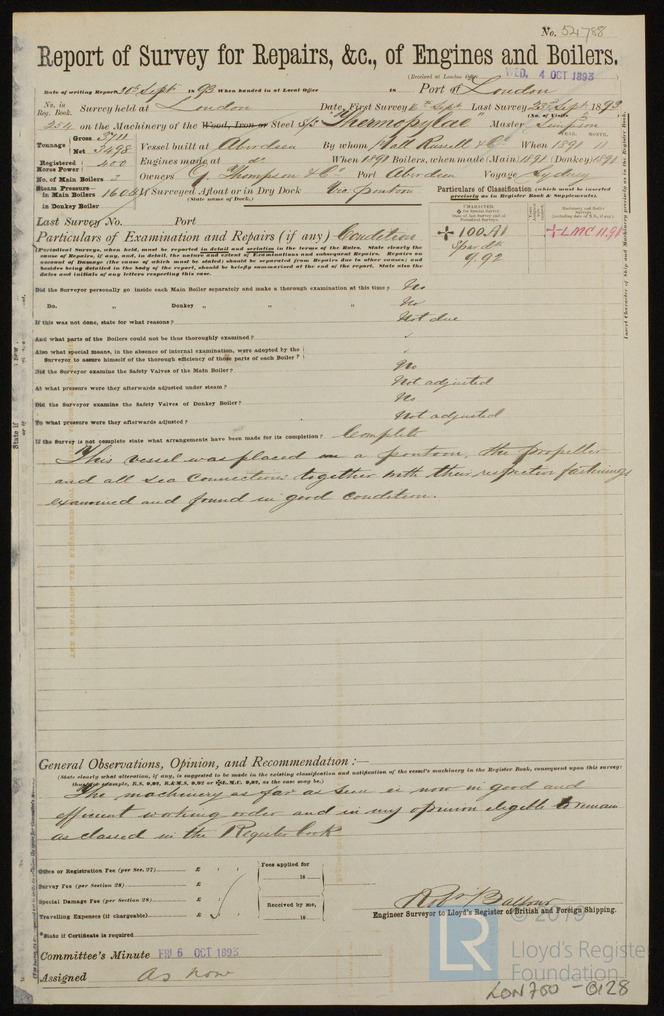 No. 52788
Report of Survey for Repairs, &c., of Engines and Boilers.
(Received at London Office WED, 4 OCT 1893)
Date of writing Report 30th Sept 1893 When handed in at Local Office 18 Port of London
No. in Reg. Book. Survey held at London Date, First Survey Sept Last Survey 23rd Sept 1893
(No. of Visits
254 on the Machinery of the Wood, Iron or Steel S/S "Thermopylae" Master Simpson
Tonnage Gross 3711
Net 3498
Vessel built at Aberdeen By whom Hall Russell & Co When 1891 11
Registered Horse Power 400 Engines made at do When 1891 Boilers, when made (Main) 1891 (Donkey) 1891
No. of Main Boilers 3 Owners G. Thompson & Co Port Aberdeen Voyage Sydney
Steam Pressure in Main Boilers 160 If Surveyed Afloat or in Dry Dock Vic. pontoon
(State name of Dock.)
in Donkey Boiler
Particulars of Classification (which must be inserted precisely as in Register Book & Supplements).
Last Survey No. Port
100A1
Spar dk
9.92
LMC 11.91
Particulars of Examination and Repairs (if any) Condition
(Periodical Surveys, when held, must be reported in detail and seriatim in the terms of the Rules. State clearly the
cause of Repairs, if any, and, in detail, the nature and extent of Examinations and subsequent Repairs. Repairs on
account of Damage (the cause of which must be stated) should be separated from Repairs due to other causes; and
besides being detailed in the body of the report, should be briefly summarised at the end of the report. State also the
dates and initials of any letters respecting this case.
Did the Surveyor personally go inside each Main Boiler separately and make a thorough examination at this time? No
Do. „ Donkey „ „ „ No
If this was not done, state for what reasons? Not due
And what parts of the Boilers could not be thus thoroughly examined?
Also what special means, in the absence of internal examination, were adopted by the
Surveyor to assure himself of the thorough efficiency of those parts of each Boiler?
Did the Surveyor examine the Safety Valves of the Main Boiler? No
At what pressure were they afterwards adjusted under steam? Not adjusted
Did the Surveyor examine the Safety Valves of Donkey Boiler? No
To what pressure were they afterwards adjusted? Not adjusted
If the Survey is not complete state what arrangements have been made for its completion? Complete
This vessel was placed on a pontoon, the propeller
and all sea connections together with their respective fastenings
examined and found in good condition.
General Observations, Opinion, and Recommendation:—
(State clearly what alteration, if any, is suggested to be made in the existing classification and notification of the vessel's machinery in the Register Book, consequent upon this survey:
thus for example, B.S. 9,92, B.&M.S. 9,92 or L.M.C. 9,92, as the case may be.)
The machinery as far as seen is now in good and
efficient working order and in my opinion eligible to remain
as classed in the Register book
Office or Registration Fee (per Sec. 27) £
Survey Fee (per Section 28) £
Special Damage Fee (per Section 28) £
Travelling Expenses (if chargeable) £
Fees applied for
18
Received by me,
18
Robt Balfour
Engineer Surveyor to Lloyd's Register of British and Foreign Shipping.
*State if Certificate is required
Committee's Minute FRI 6 OCT 1893
Assigned As now
© 2019
LR Lloyd's Register
Foundation
LON760-0128